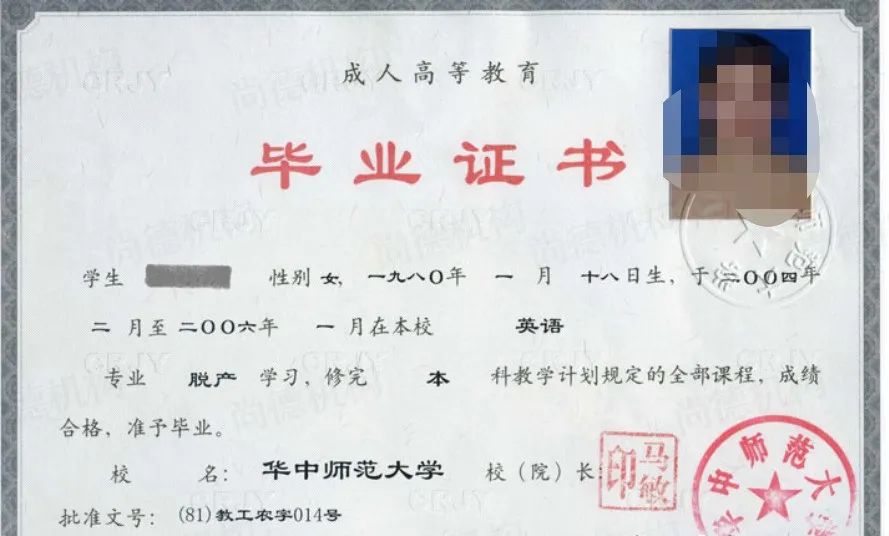 成人高等教育
毕业证书
学生 性别 女，一九八〇年 一 月 十八日生，于 二〇〇四年
二 月至 二〇〇六年 一 月在本校 英语
专业 脱产 学习，修完 本 科教学计划规定的全部课程，成绩
合格，准予毕业。
校 名： 华中师范大学 校（院）长：
马敏印
批准文号： (81)教工农字014号
中师范大
尚德机构
GRJY